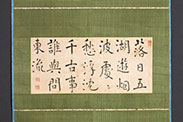 落日五
湖遊烟
波處處
愁浮沈
千古事
誰與問
東流